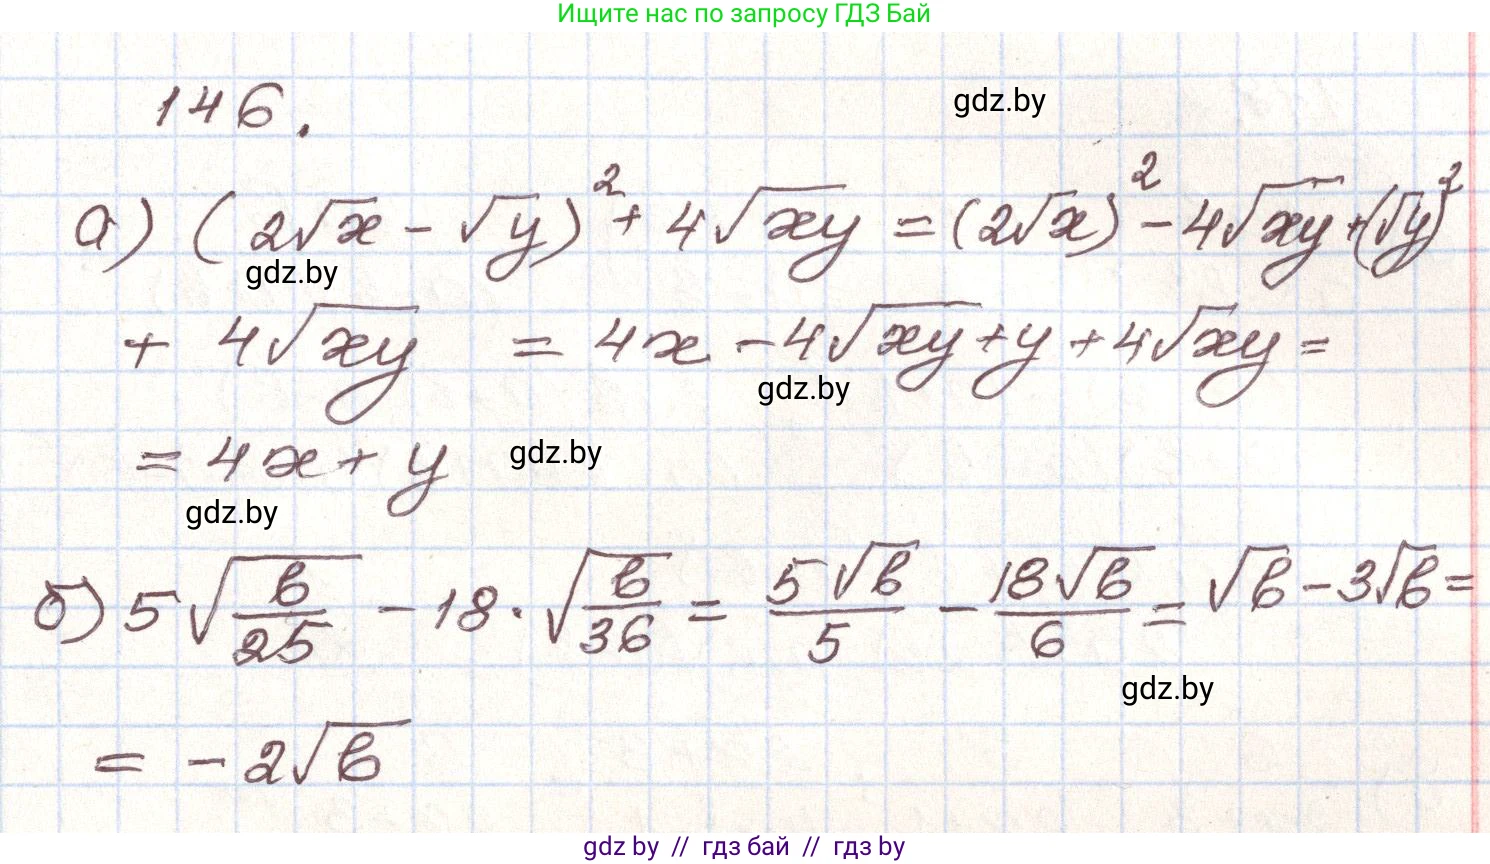 Ищите нас по запросу ГДЗ Бай
146.
gdz.by
а) (2√x - √y)² + 4√xy = (2√x)² - 4√xy + (√y)²
gdz.by
+ 4√xy = 4x - 4√xy + y + 4√xy =
gdz.by
= 4x + y
gdz.by
gdz.by
б) 5√(b/25) - 18 · √(b/36) = 5√b/5 - 18√b/6 = √b - 3√b =
gdz.by
= - 2√b
gdz.by // гдз бай // гдз by